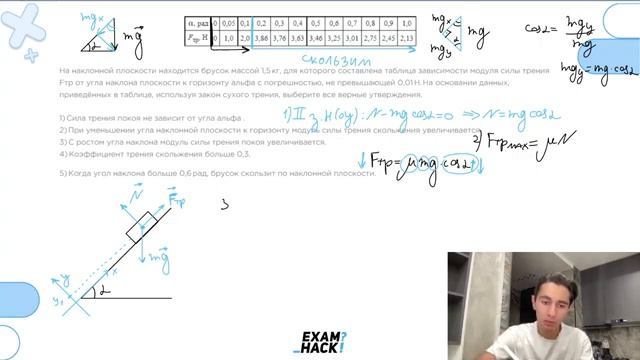 mgx
α
mg
α, рад 0 0,05 0,1 0,2 0,3 0,4 0,5 0,6 0,7 0,8 0,9 1,0
Fтр, Н 0 1,0 2,0 3,86 3,76 3,63 3,46 3,25 3,01 2,75 2,45 2,13
скользим
mgx
mgy
mg
cosα = mgy / mg
mgy = mg·cosα
На наклонной плоскости находится брусок массой 1,5 кг, для которого составлена таблица зависимости модуля силы трения
Fтр от угла наклона плоскости к горизонту альфа с погрешностью, не превышающей 0,01 Н. На основании данных,
приведённых в таблице, используя закон сухого трения, выберите все верные утверждения.
1) Сила трения покоя не зависит от угла альфа.
1) II з.Н(oy): N - mg cosα = 0 ⇒ N = mg cosα
2) При уменьшении угла наклона плоскости к горизонту модуль силы трения скольжения увеличивается.
2) Fтр max = μN
3) С ростом угла наклона модуль силы трения покоя увеличивается.
4) Коэффициент трения скольжения больше 0,3.
↓ Fтр = μ mg · cosα ↑ ↓
5) Когда угол наклона больше 0,6 рад, брусок скользит по наклонной плоскости.
N
Fтр
3
mg
y
x
α
EXAM?
_HACK!